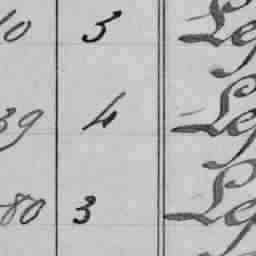 10 3 Le
39 4 Le
80 3 Le